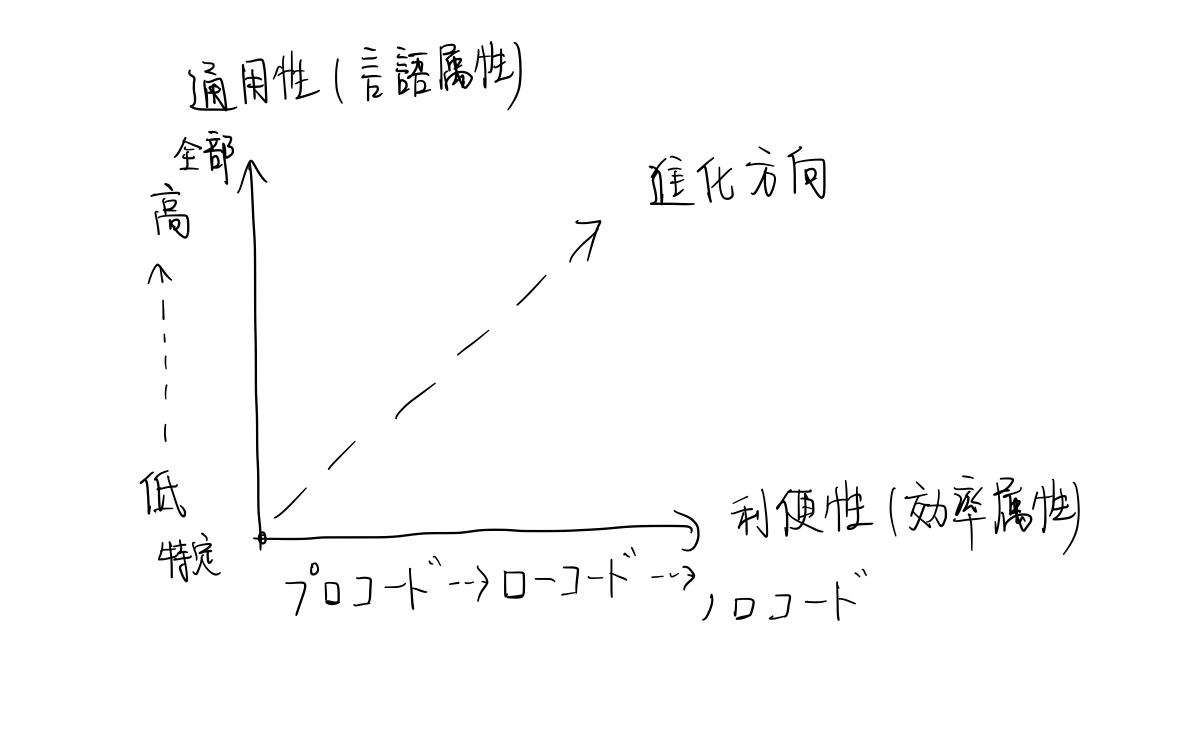 通用性(言語属性)
全部
高
進化方向
低
特定
利便性(効率属性)
プロコード-->ローコード-->ノロコード